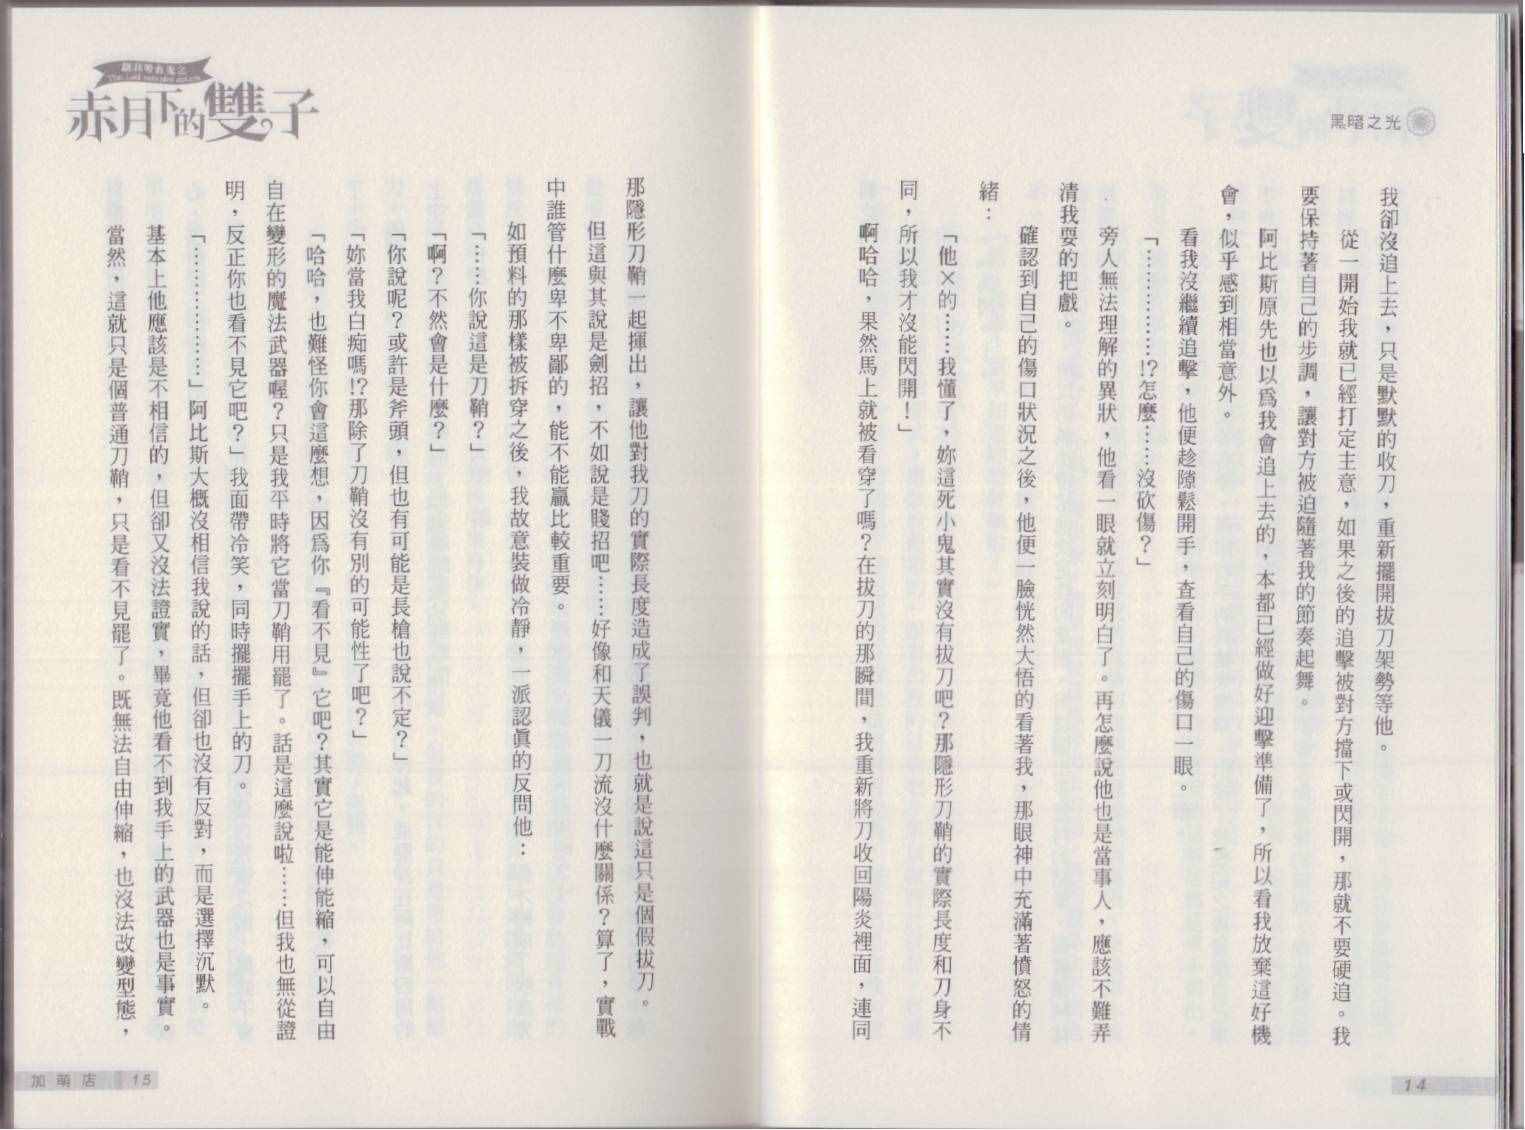 黑暗之光
我卻沒追上去，只是默默的收刀，重新擺開拔刀架勢等他。
從一開始我就已經打定主意，如果之後的追擊被對方擋下或閃開，那就不要硬追。我
要保持著自己的步調，讓對方被迫隨著我的節奏起舞。
阿比斯原先也以為我會追上去的，本都已經做好迎擊準備了，所以看我放棄這好機
會，似乎感到相當意外。
看我沒繼續追擊，他便趁隙鬆開手，查看自己的傷口一眼。
「…………!?怎麼……沒砍傷？」
旁人無法理解的異狀，他看一眼就立刻明白了。再怎麼說他也是當事人，應該不難弄
清我耍的把戲。
確認到自己的傷口狀況之後，他便一臉恍然大悟的看著我，那眼神中充滿著憤怒的情
緒：
「他×的……我懂了，妳這死小鬼其實沒有拔刀吧？那隱形刀鞘的實際長度和刀身不
同，所以我才沒能閃開！」
啊哈哈，果然馬上就被看穿了嗎？在拔刀的那瞬間，我重新將刀收回陽炎裡面，連同
14
赤月下的雙子
那隱形刀鞘一起揮出，讓他對我刀的實際長度造成了誤判，也就是說這只是個假拔刀。
但這與其說是劍招，不如說是賤招吧……好像和天儀一刀流沒什麼關係？算了，實戰
中誰管什麼卑不卑鄙的，能不能贏比較重要。
如預料的那樣被拆穿之後，我故意裝做冷靜，一派認真的反問他：
「……你說這是刀鞘？」
「啊？不然會是什麼？」
「你說呢？或許是斧頭，但也有可能是長槍也說不定？」
「妳當我白痴嗎!?那除了刀鞘沒有別的可能性了吧？」
「哈哈，也難怪你會這麼想，因為你『看不見』它吧？其實它是能伸能縮，可以自由
自在變形的魔法武器喔？只是我平時將它當刀鞘用罷了。話是這麼說啦……但我也無從證
明，反正你也看不見它吧？」我面帶冷笑，同時擺擺手上的刀。
「……………」阿比斯大概沒相信我說的話，但卻也沒有反對，而是選擇沉默。
基本上他應該是不相信的，但卻又沒法證實，畢竟他看不到我手上的武器也是事實。
當然，這就只是個普通刀鞘，只是看不見罷了。既無法自由伸縮，也沒法改變型態，
加萌店 15